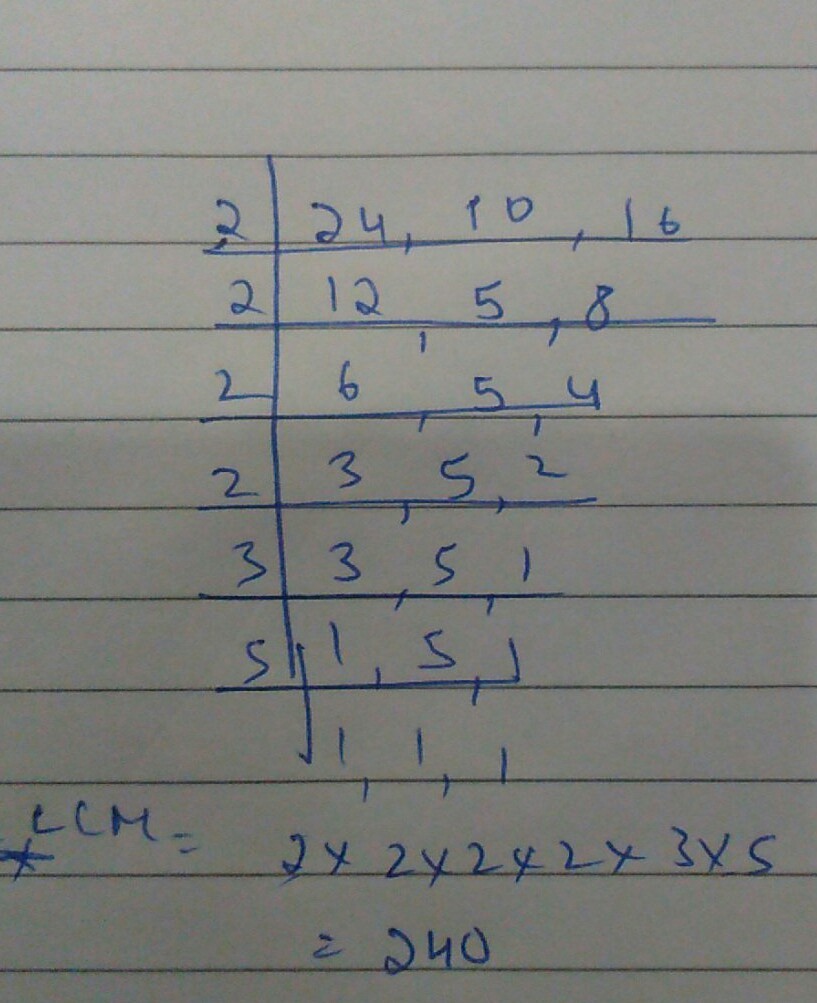 2 | 24, 10, 16
2 | 12, 5, 8
2 | 6, 5, 4
2 | 3, 5, 2
3 | 3, 5, 1
5 | 1, 5, 1
1, 1, 1
LCM = 2 × 2 × 2 × 2 × 3 × 5
= 240